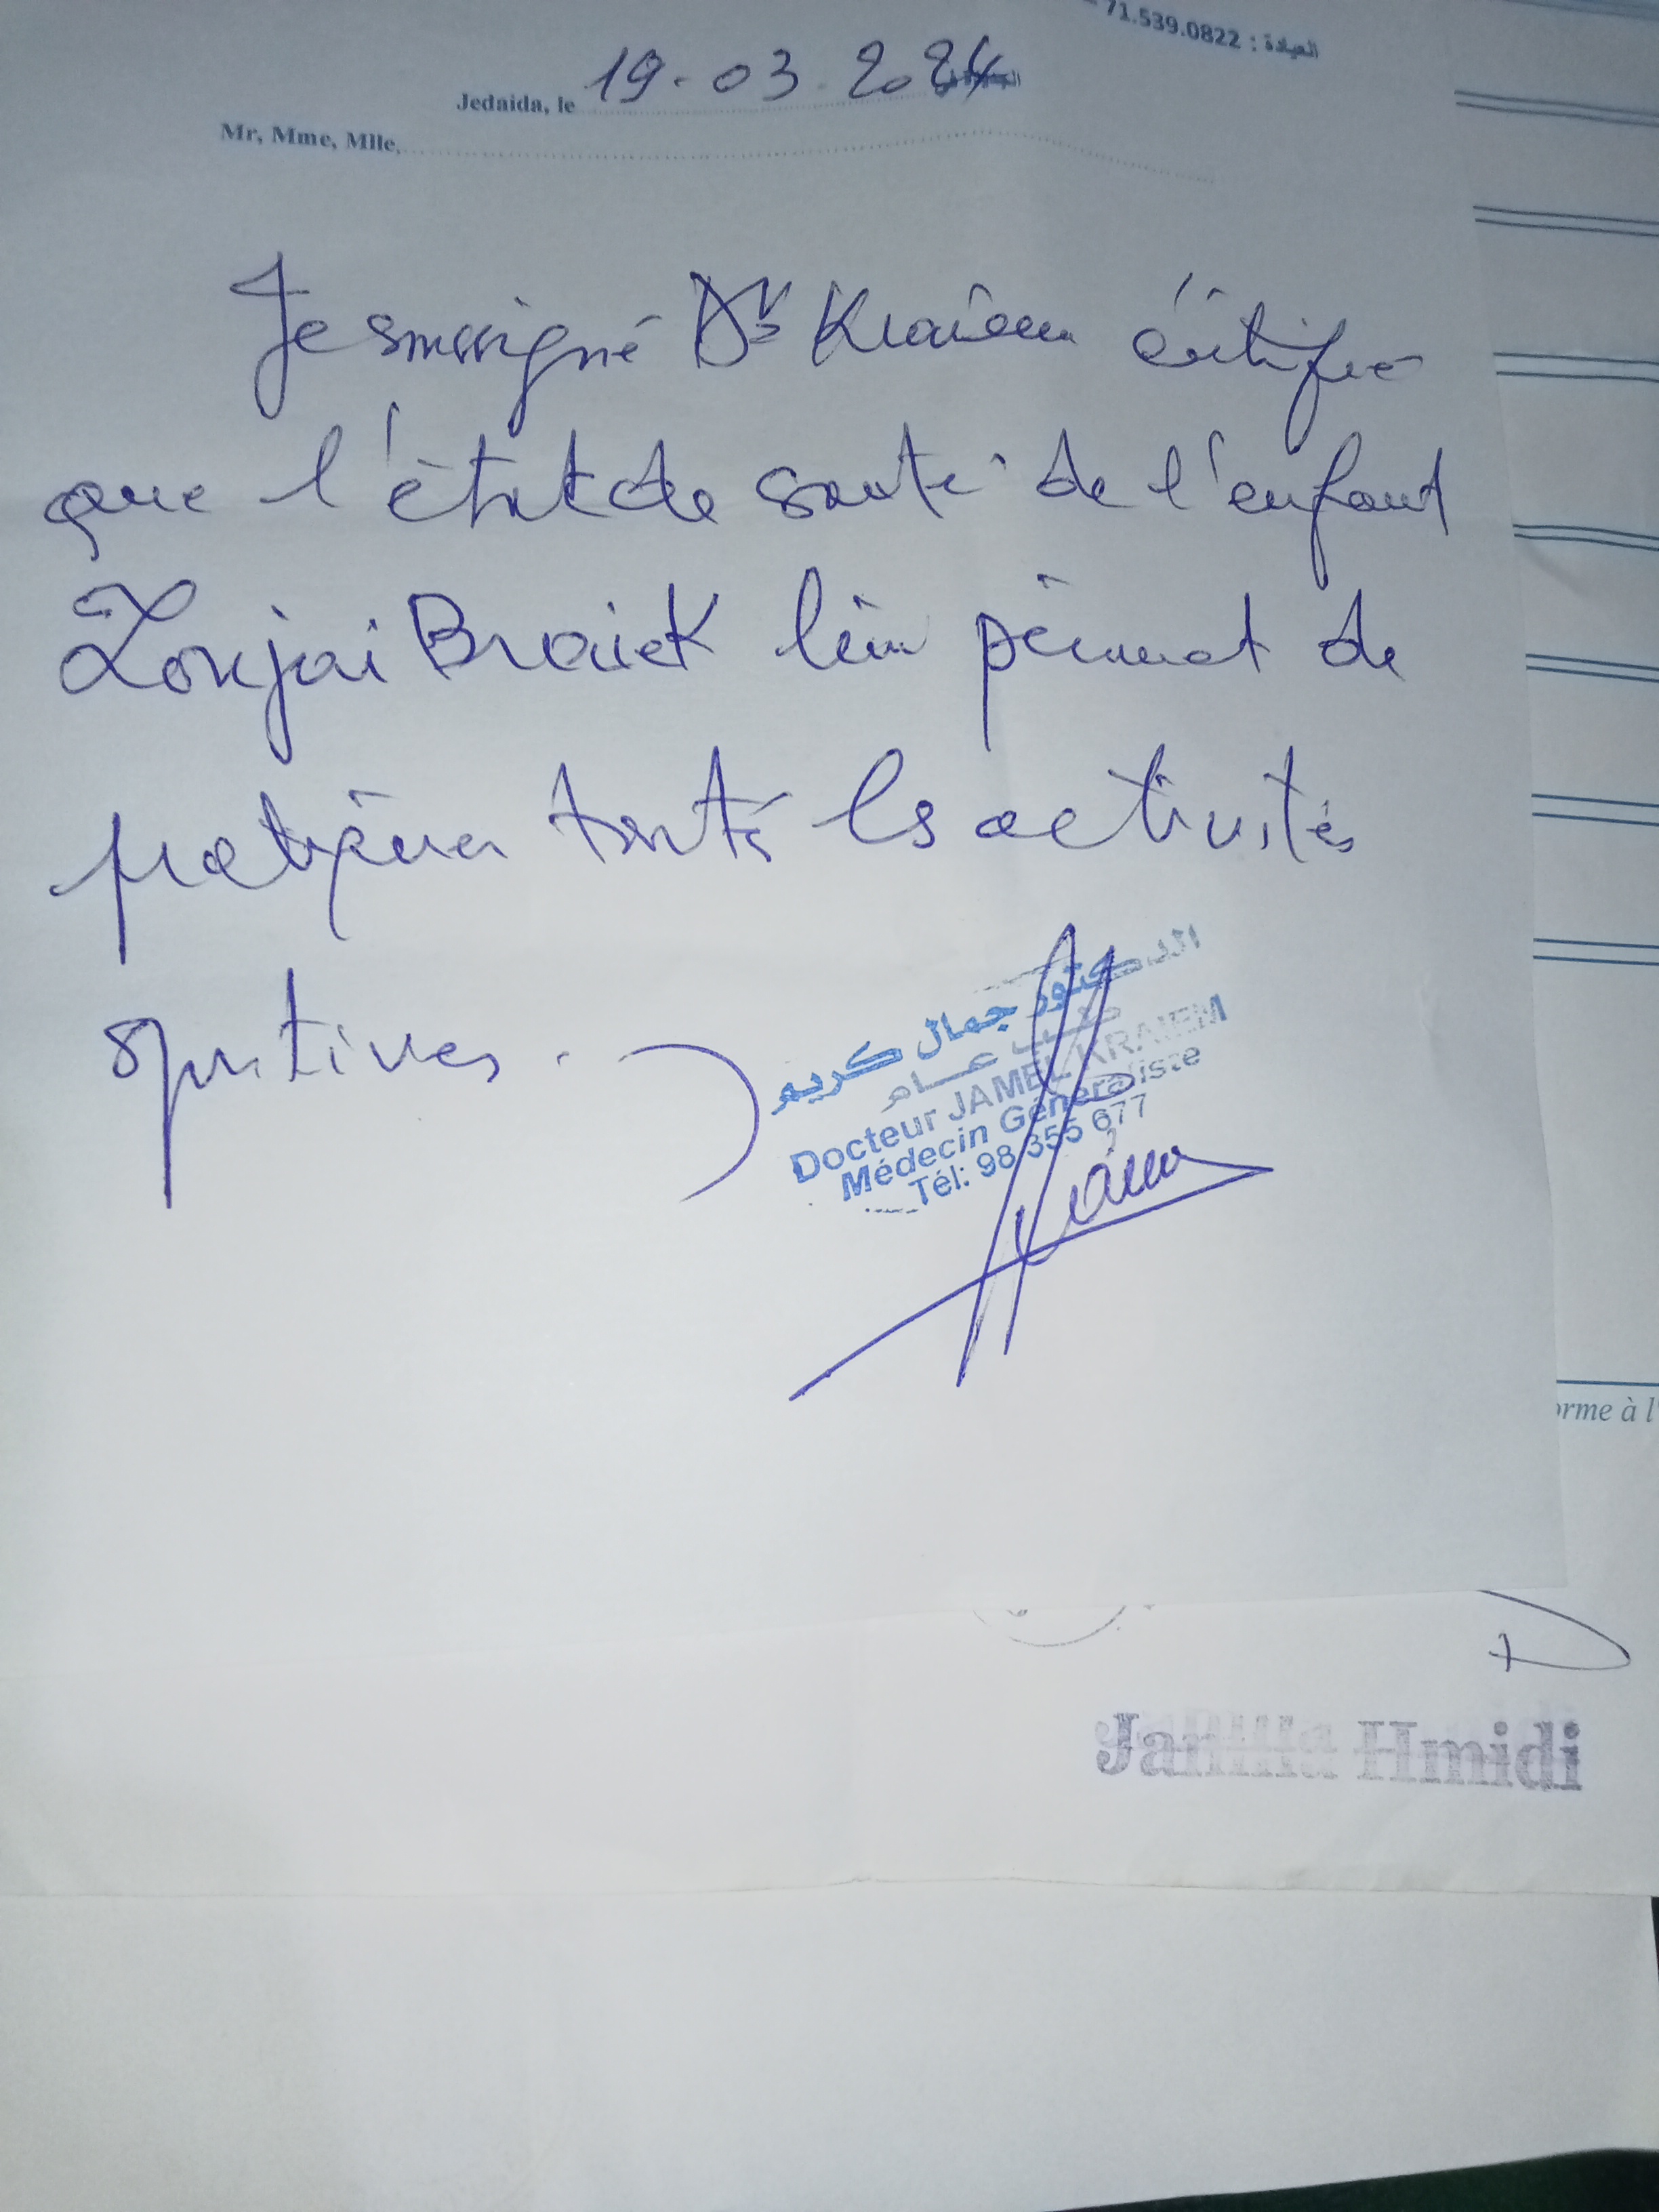 71.539.0822 : العيادة
Jedaida, le 19.03.2024
Mr, Mme, Mlle,
Je soussigné Dr Kraiem certifie
que l'état de santé de l'enfant
Zoujai Braiek lui permet de
pratiquer toutes les activités
sportives.
الدكتور جمال كريم
طبيب عام
Docteur JAMEL KRAIEM
Médecin Généraliste
Tél: 98 355 677
orme à l'
Jamila Hmidi